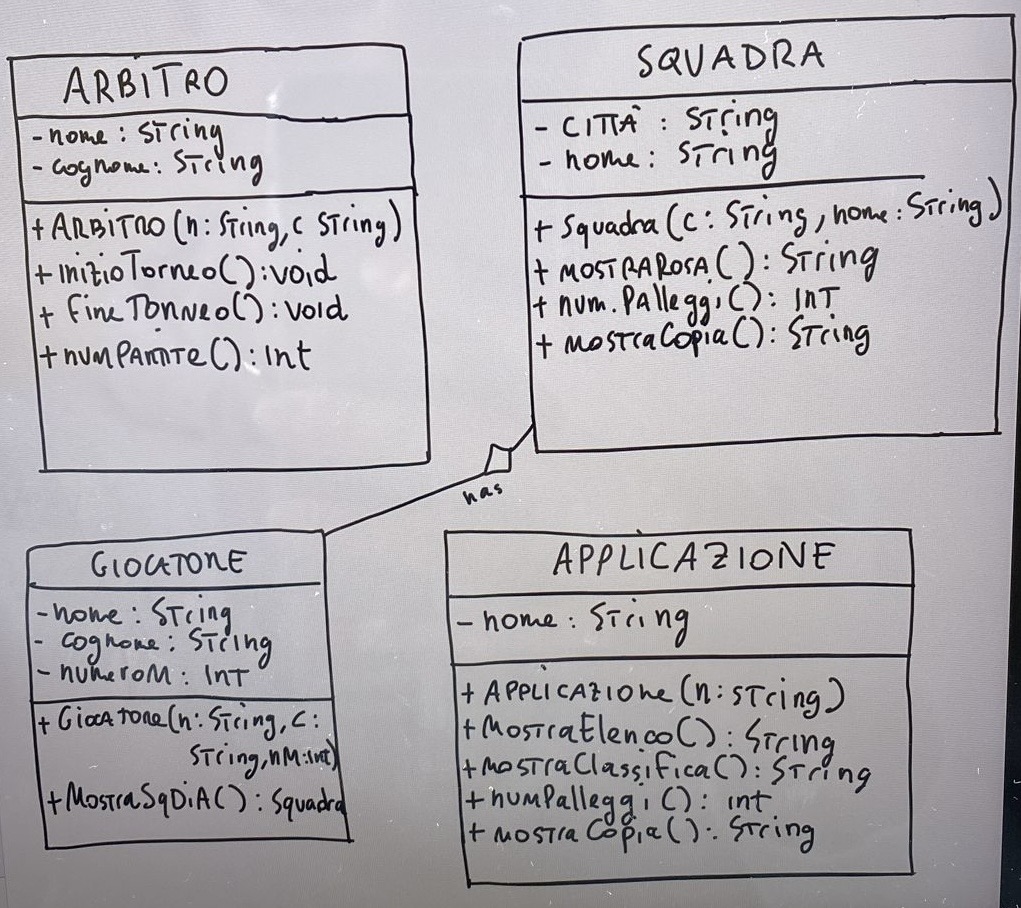 ARBITRO
- nome : String
- cognome : String
+ ARBITRO (n: String, c String)
+ inizioTorneo() : void
+ fineTorneo() : void
+ numPARTITE() : Int
SQUADRA
- CITTÀ : String
- nome : String
+ Squadra (c : String, nome : String)
+ MOSTRAROSA() : String
+ num.Palleggi() : INT
+ mostraCopia() : String
has
GIOCATORE
- nome : String
- cognome : String
- numeroM : INT
+ GIOCATORE (n: String, c :
String, nM : int)
+ MostraSqDiA() : Squadra
APPLICAZIONE
- nome : String
+ APPLICAZIONe (n : String)
+ MostraElenco() : String
+ mostraClassifica() : String
+ numPalleggi() : int
+ mostraCopia() : String